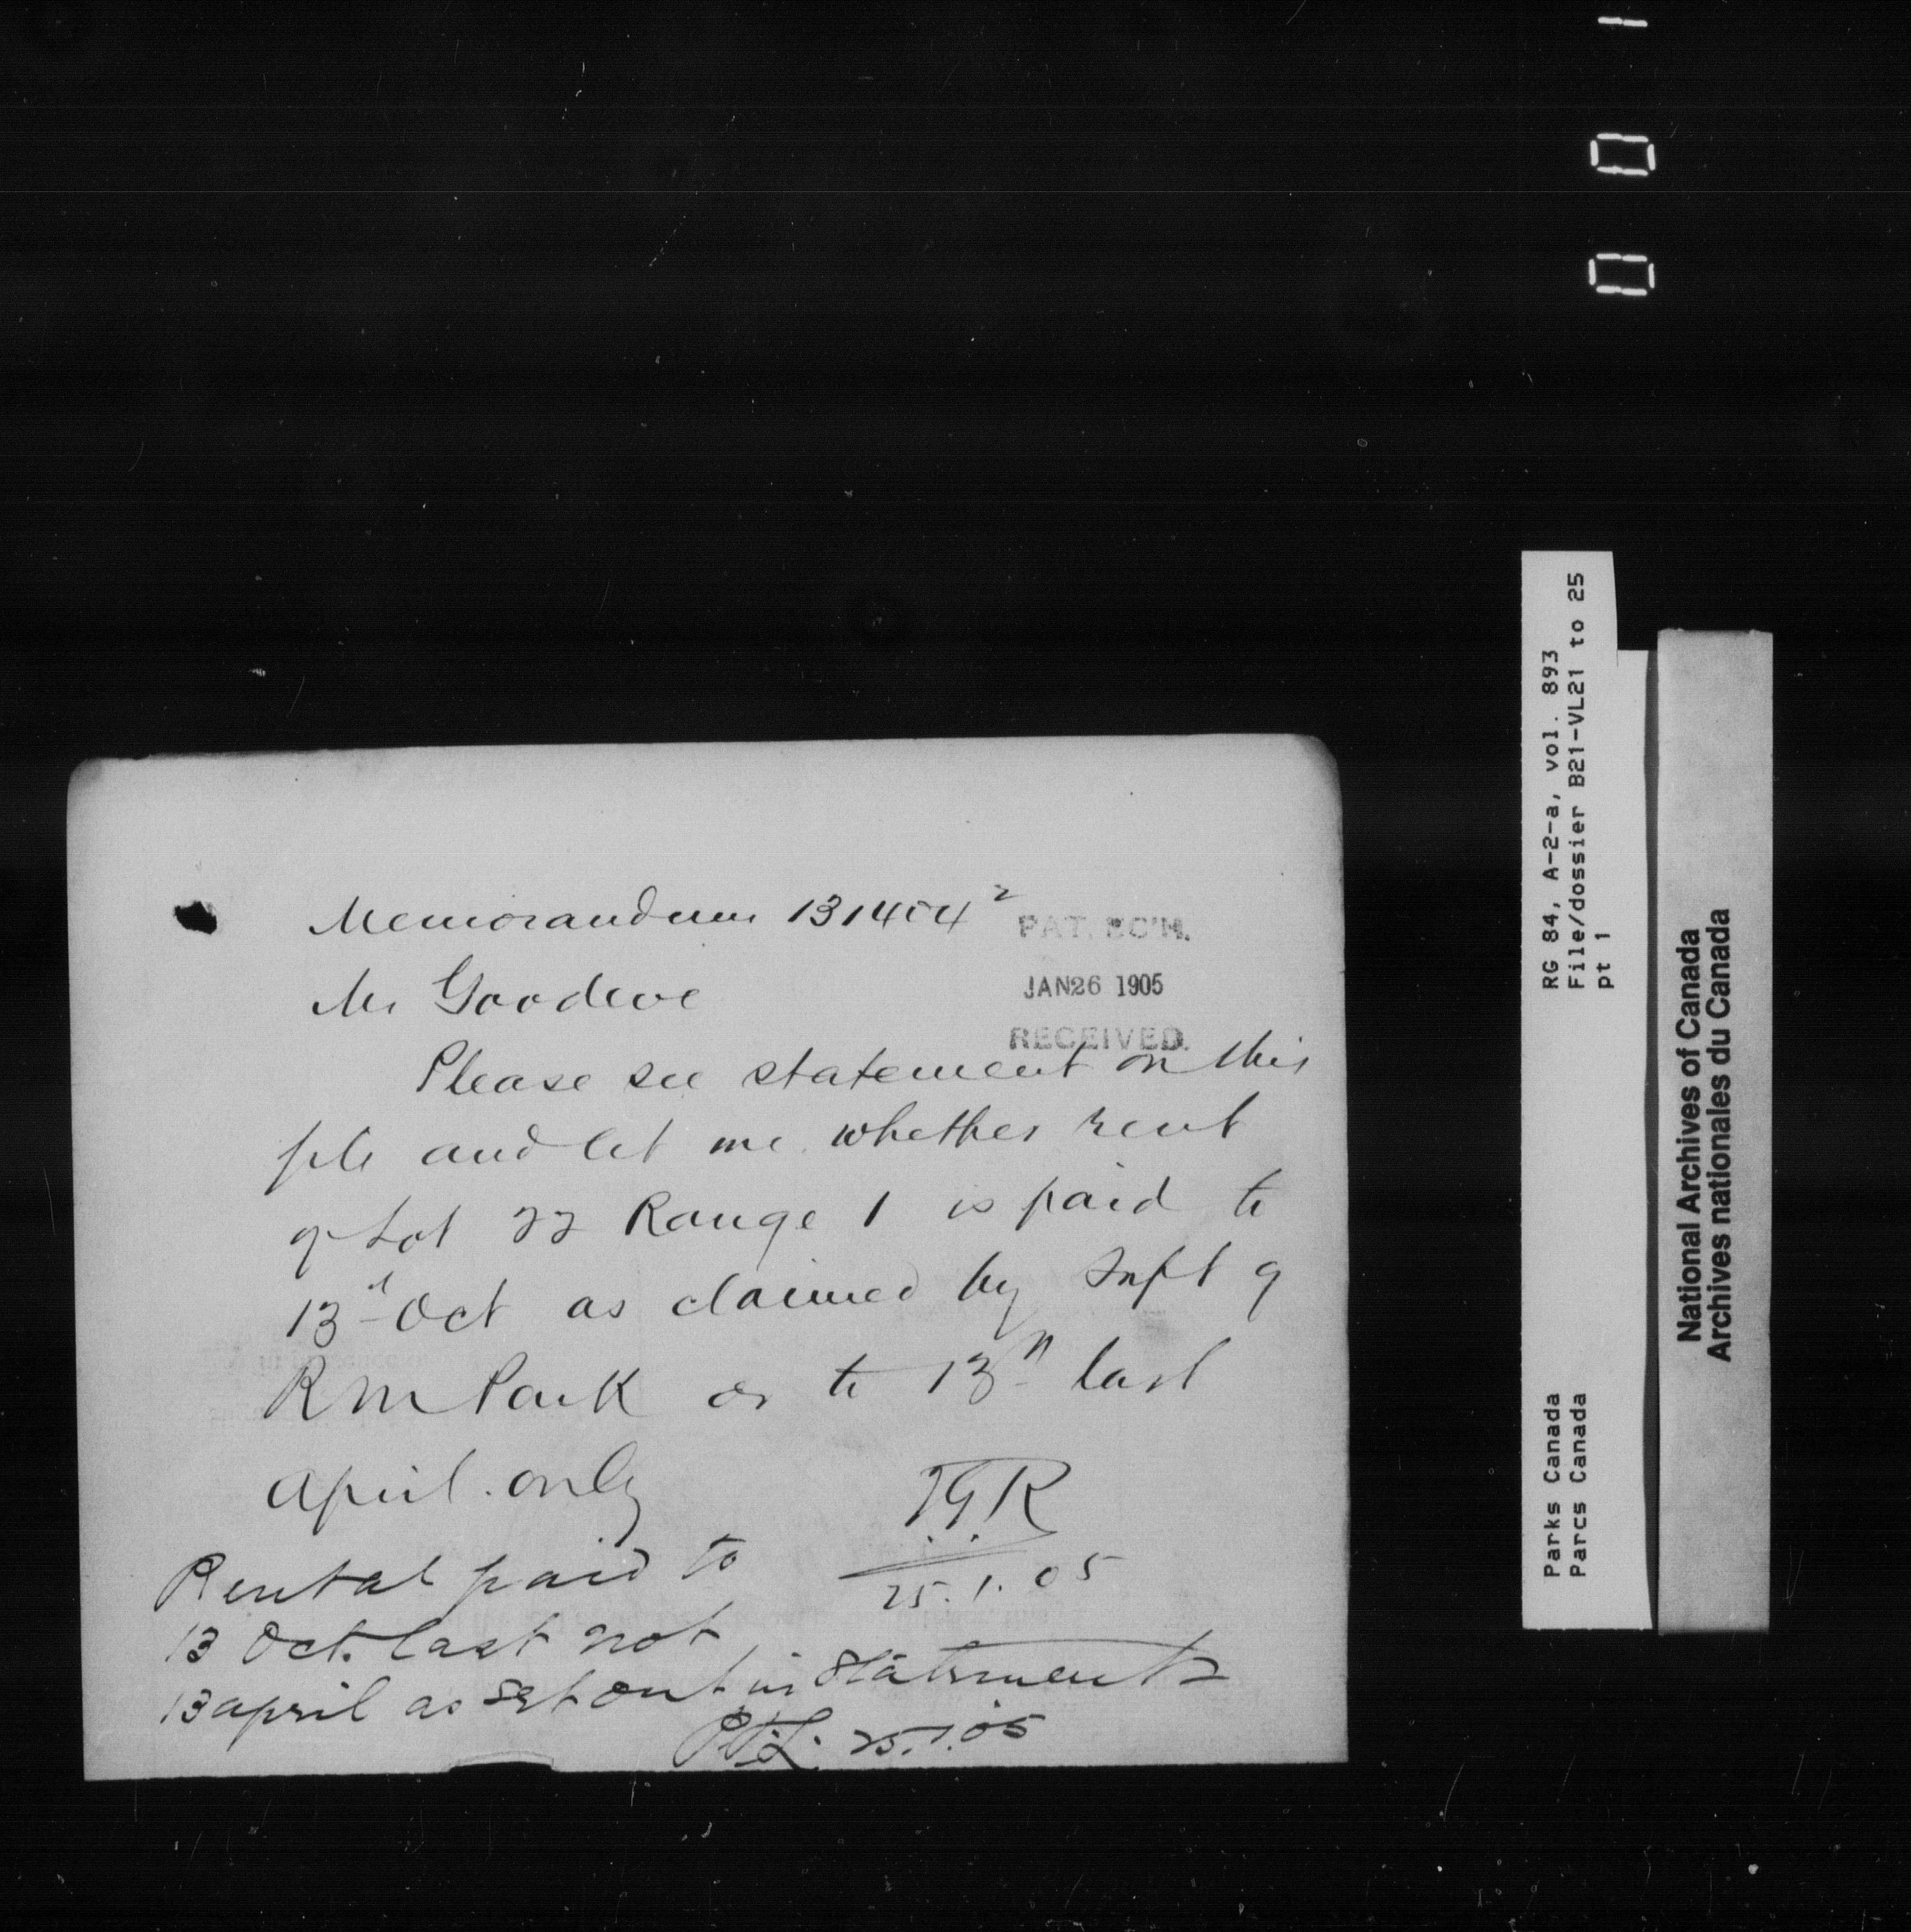 1
0
0
Memorandum 131404²
PAT. BC'H.
Mr Goodeve
JAN 26 1905
RECEIVED.
Please see statement on this
file and let me whether rent
of Lot 22 Range 1 is paid to
13th Oct as claimed by Supt of
R M Park or to 13th last
April only
T.G.R
25.1.05
Rental paid to
13 Oct. last not
13 april as set out in statement
25.1.05
RG 84, A-2-a, vol. 893
File/dossier B21-VL21 to 25
pt 1
Parks Canada
Parcs Canada
National Archives of Canada
Archives nationales du Canada